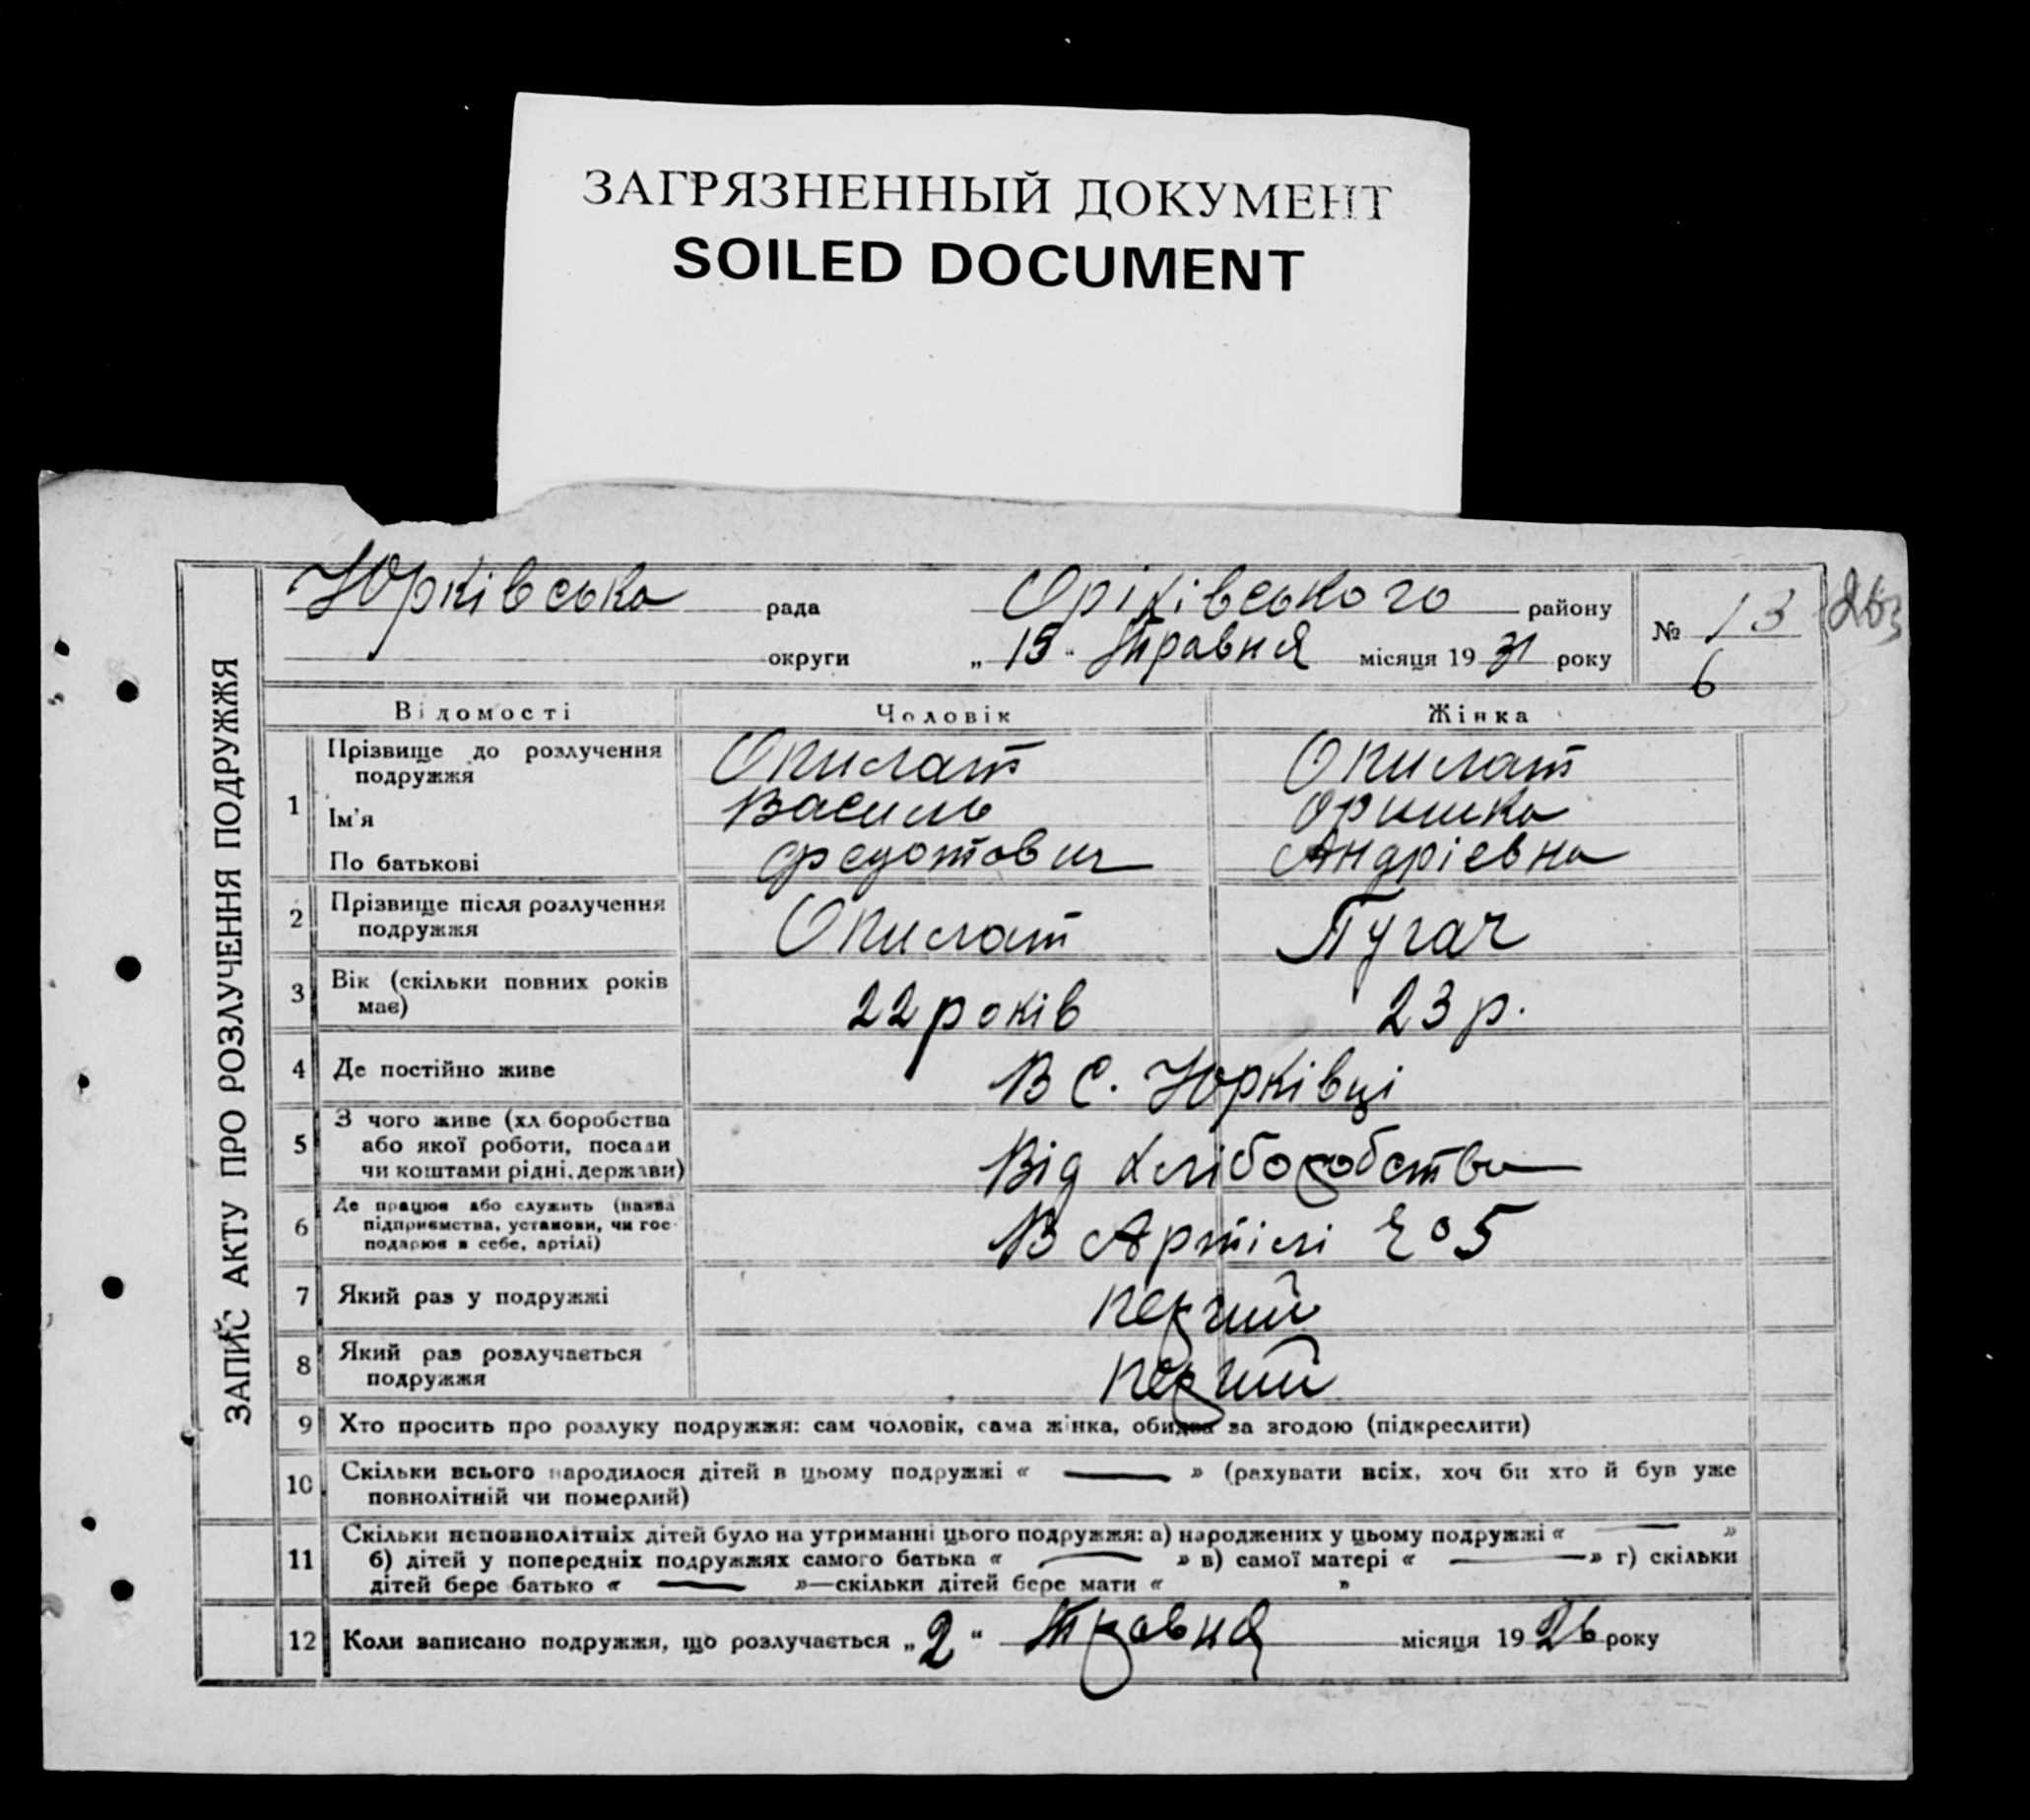 ЗАГРЯЗНЕННЫЙ ДОКУМЕНТ
SOILED DOCUMENT
ЗАПИС АКТУ ПРО РОЗЛУЧЕННЯ ПОДРУЖЖЯ
Юрківська рада Оріхівського району
округи „15" Травня місяця 1931 року
№ 13
263
6
Відомості Чоловік Жінка
1 Прізвище до розлучення подружжя Опилат Опилат
Ім'я Василь Оришка
По батькові Федотович Андрієвна
2 Прізвище після розлучення подружжя Опилат Пугач
3 Вік (скільки повних років має) 22 років 23 р.
4 Де постійно живе В С. Юрківці
5 З чого живе (хл боробства або якої роботи, посади чи коштами рідні, держави) Від хліборобства
6 Де працює або служить (назва підприємства, установи, чи господарює в себе, артілі) В Артілі 5
7 Який раз у подружжі перший
8 Який раз розлучається подружжя перший
9 Хто просить про розлуку подружжя: сам чоловік, сама жінка, обидва за згодою (підкреслити)
10 Скільки всього народилося дітей в цьому подружжі « — » (рахувати всіх, хоч би хто й був уже
повнолітній чи померлий)
11 Скільки неповнолітніх дітей було на утриманні цього подружжя: а) народжених у цьому подружжі « — »
б) дітей у попередніх подружжях самого батька « — » в) самої матері « — » г) скільки
дітей бере батько « — »—скільки дітей бере мати « »
12 Коли записано подружжя, що розлучається „2" Травня місяця 1926 року